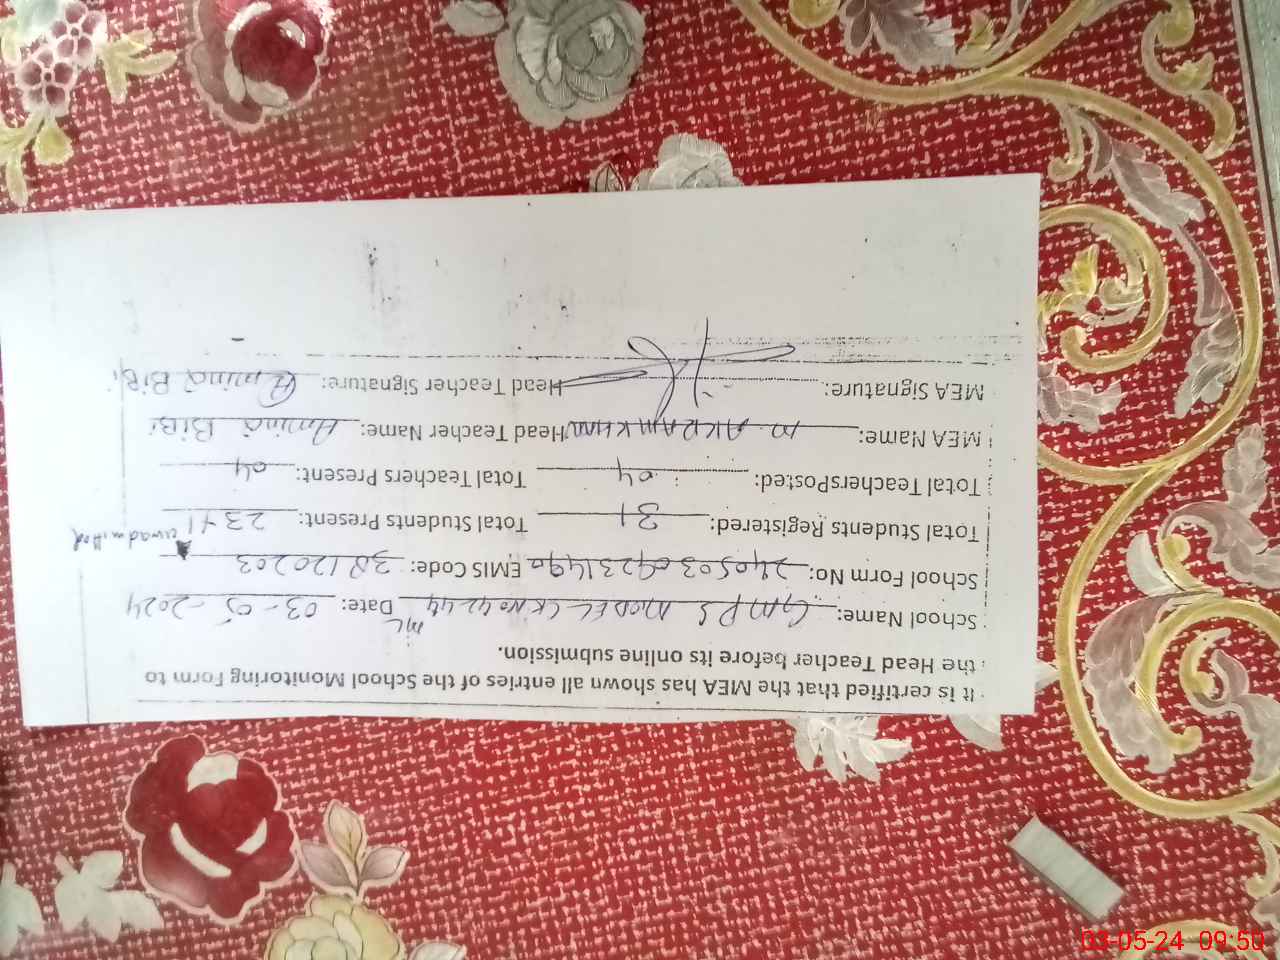 It is certified that the MEA has shown all entries of the School Monitoring Form to
the Head Teacher before its online submission.
School Name: GMPS MODEL CK NO 42 44 ML Date: 03-05-2024
School Form No: EMIS Code: 38120203
Total Students Registered: 31 Total Students Present: 23+1
Total TeachersPosted: 04 Total Teachers Present: 04
MEA Name: M. AKRAM KHAN Head Teacher Name: Amina BiBi
MEA Signature: Head Teacher Signature: Amina BiBi
03-05-24 09:50